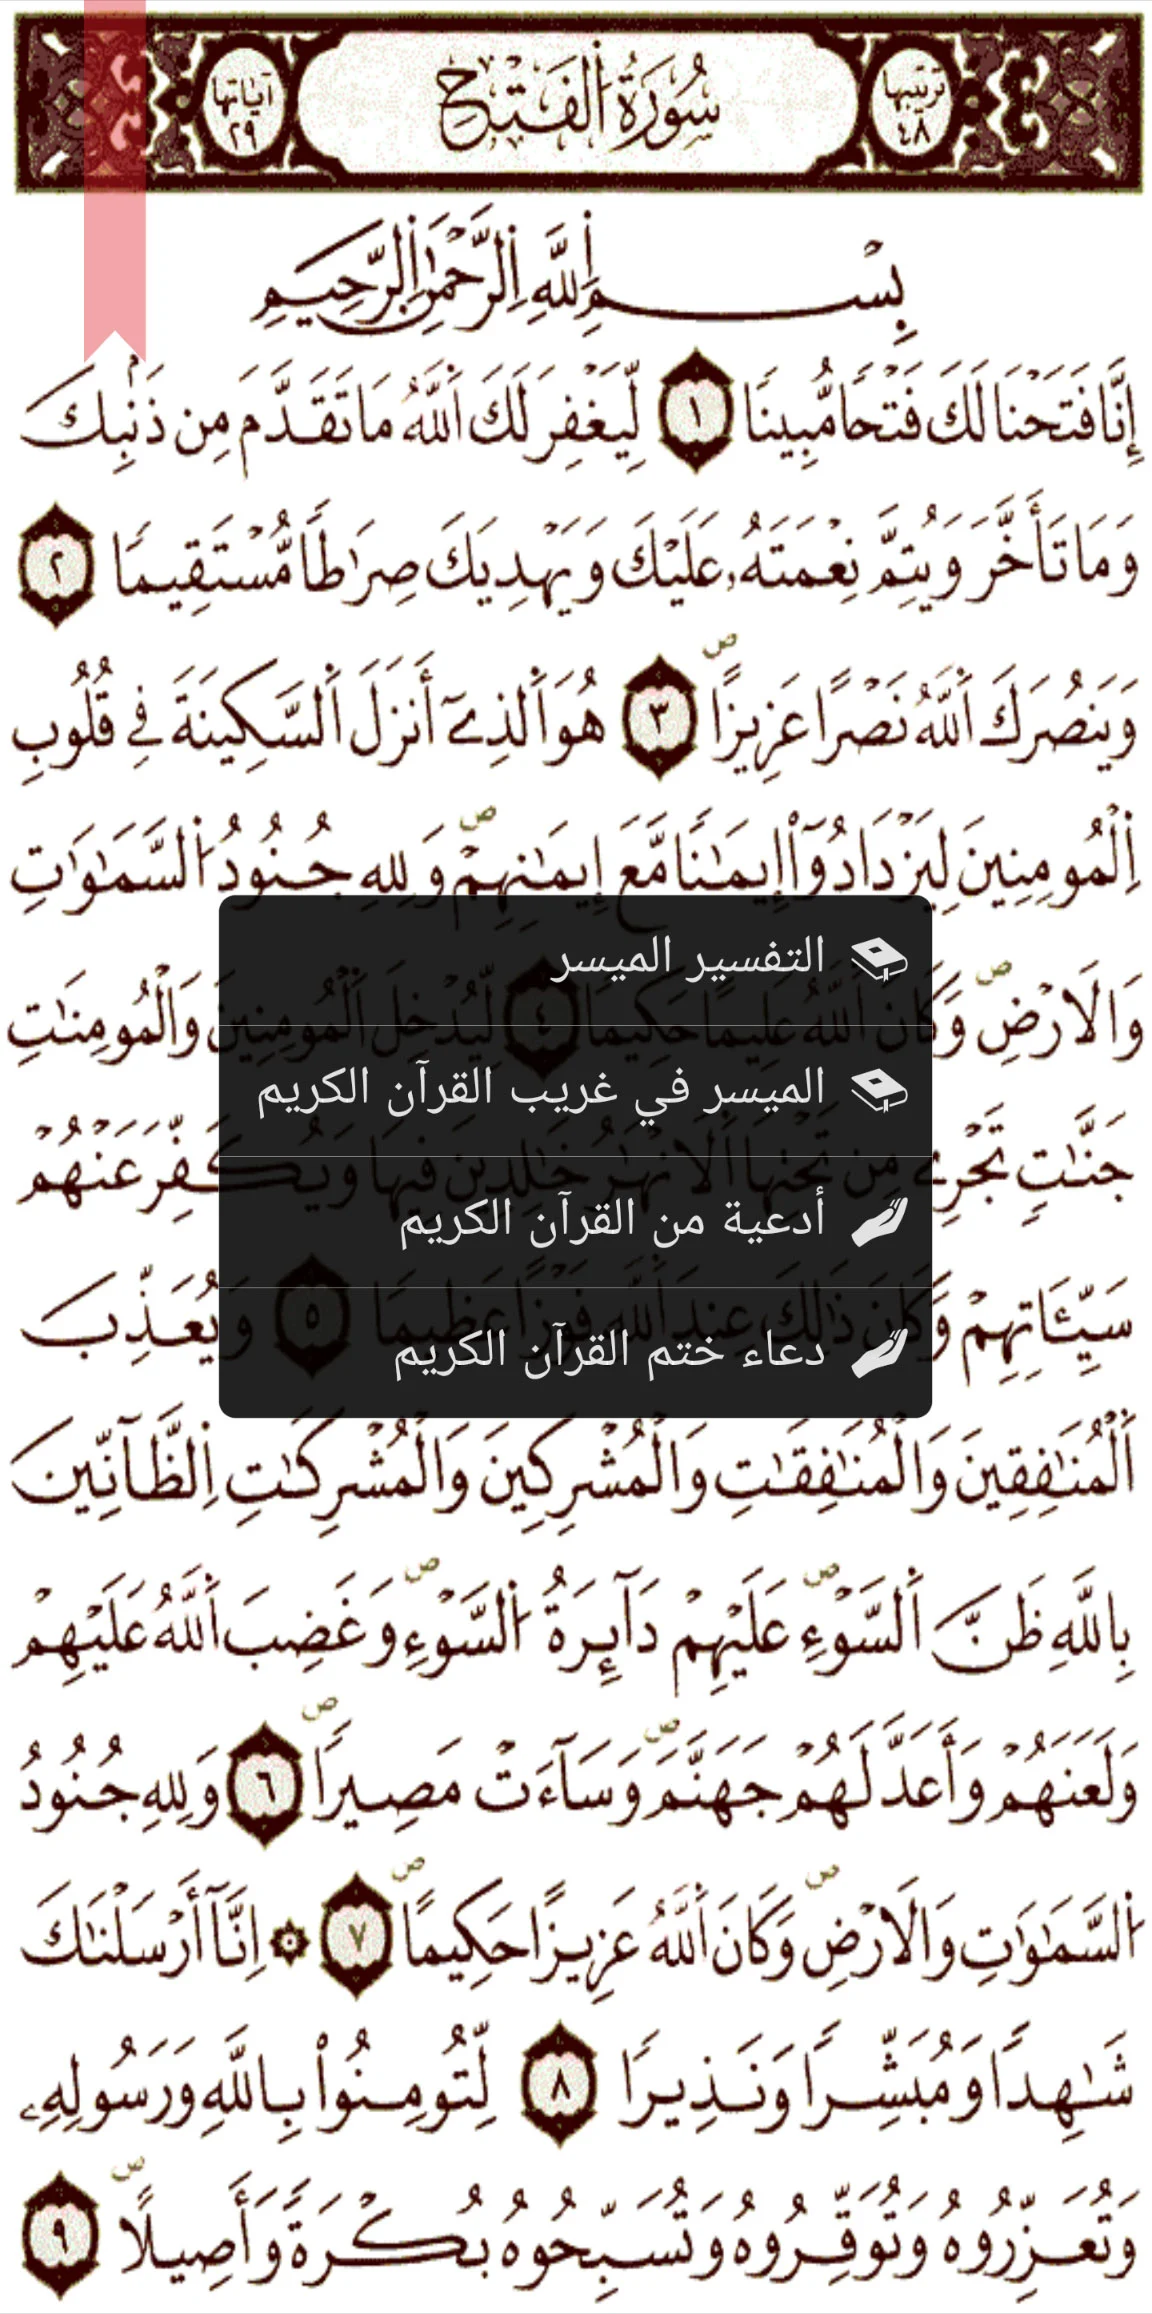 ترتيبها ٤٨ سُورَةُ الفَتْحِ آياتها ٢٩
بِسْمِ اِللَّهِ اِلرَّحْمَٰنِ اِلرَّحِيمِ
إِنَّا فَتَحْنَا لَكَ فَتْحًا مُّبِينًا ١ لِّيَغْفِرَ لَكَ اَللَّهُ مَا تَقَدَّمَ مِن ذَنۢبِكَ
وَمَا تَأَخَّرَ وَيُتِمَّ نِعْمَتَهُۥ عَلَيْكَ وَيَهْدِيَكَ صِرَٰطًا مُّسْتَقِيمًا ٢
وَيَنصُرَكَ اَللَّهُ نَصْرًا عَزِيزًا ص ٣ هُوَ اَلذِےٓ أَنزَلَ اَلسَّكِينَةَ فِے قُلُوبِ
اِلْمُومِنِينَ لِيَزْدَادُوٓاْ إِيمَٰنًا مَّعَ إِيمَٰنِهِمْ ص وَلِلهِ جُنُودُ اُلسَّمَٰوَٰتِ
وَالَارْضِ ص وَكَانَ اَللَّهُ عَلِيمًا حَكِيمًا ٤ لِّيُدْخِلَ اَلْمُومِنِينَ وَالْمُومِنَٰتِ
جَنَّٰتٍ تَجْرِے مِن تَحْتِهَا اَلَانْهَٰرُ خَٰلِدِينَ فِيهَا وَيُكَفِّرَ عَنْهُمْ
سَيِّـَٔاتِهِمْ وَكَانَ ذَٰلِكَ عِندَ اَللَّهِ فَوْزًا عَظِيمًا ٥ وَيُعَذِّبَ
اَلْمُنَٰفِقِينَ وَالْمُنَٰفِقَٰتِ وَالْمُشْرِكِينَ وَالْمُشْرِكَٰتِ اِلظَّآنِّينَ
بِاللَّهِ ظَنَّ اَلسَّوْءِ ص عَلَيْهِمْ دَآئِرَةُ اُلسَّوْءِ ص وَغَضِبَ اَللَّهُ عَلَيْهِمْ
وَلَعَنَهُمْ وَأَعَدَّ لَهُمْ جَهَنَّمَ ص وَسَآءَتْ مَصِيرًا ص ٦ وَلِلهِ جُنُودُ
اُلسَّمَٰوَٰتِ وَالَارْضِ ص وَكَانَ اَللَّهُ عَزِيزًا حَكِيمًا ص ٧ ۞ اِنَّآ أَرْسَلْنَٰكَ
شَٰهِدًا وَمُبَشِّرًا وَنَذِيرًا ٨ لِّتُومِنُواْ بِاللَّهِ وَرَسُولِهِۦ
وَتُعَزِّرُوهُ وَتُوَقِّرُوهُ وَتُسَبِّحُوهُ بُكْرَةً وَأَصِيلًا ص ٩
التفسير الميسر
الميسر في غريب القرآن الكريم
أدعية من القرآن الكريم
دعاء ختم القرآن الكريم